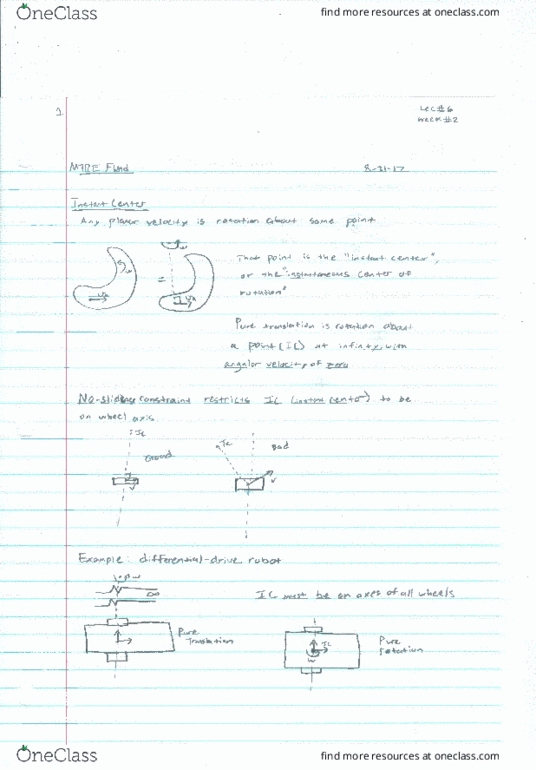 OneClass
find more resources at oneclass.com
1
Lec #6
Week #2
8-31-17
Instant Center
Any planar velocity is rotation about some point
That point is the "instant center",
or the "instantaneous center of
rotation"
=
Pure translation is rotation about
a point (IC) at infinity with
angular velocity of zero
No-sliding constraint restricts IC (instant center) to be
on wheel axis
IC
IC
Bad
v
v
Example: differential-drive robot
∞
IC must be on axes of all wheels
Pure
Translation
IC
w
Pure
rotation
OneClass
find more resources at oneclass.com